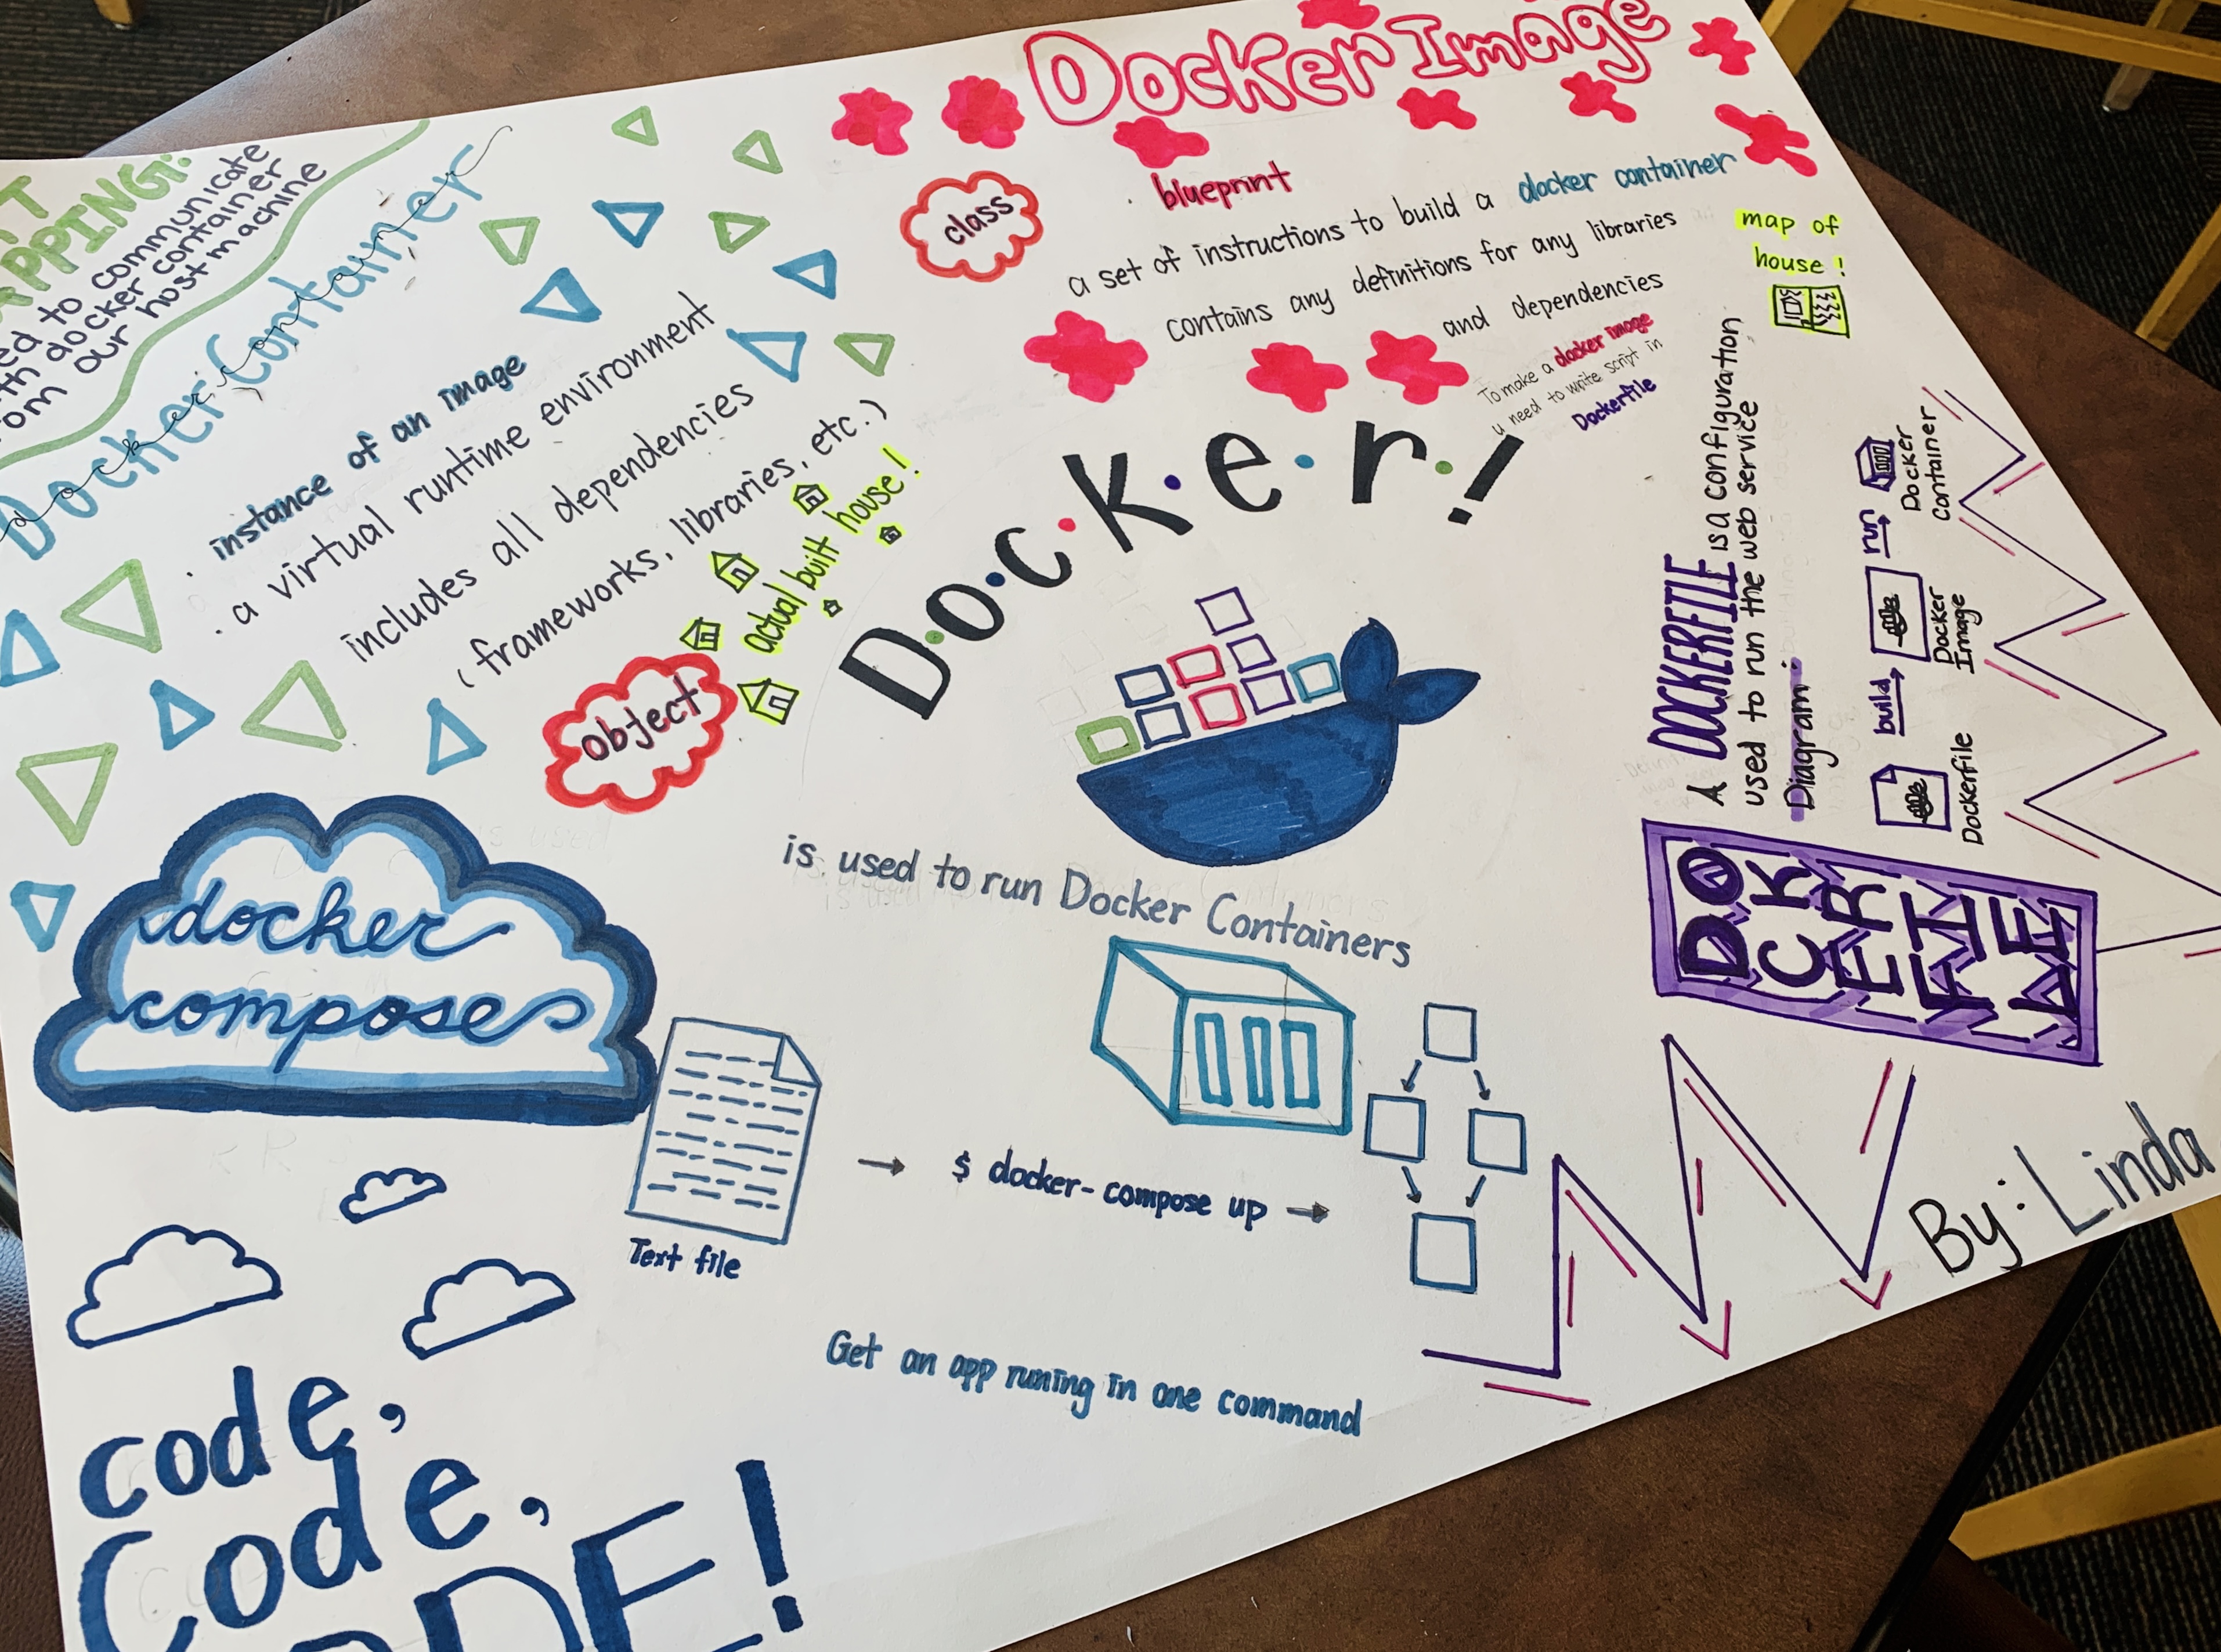 Docker Image
class
blueprint
a set of instructions to build a docker container
contains any definitions for any libraries
and dependencies
map of
house!
To make a docker image
u need to write script in
Dockerfile
APPING:
to communicate
docker container
our host machine
Docker Container
Docker Container
instance of an image
a virtual runtime environment
includes all dependencies
(frameworks, libraries, etc.)
actual built house!
object
Docker!
is used to run Docker Containers
A DOCKERFILE is a configuration
used to run the web service
Diagram:
build
run
Dockerfile
Docker
Image
Docker
Container
DO
CK
ER
FI
LE
docker
compose
Text file
$ docker-compose up
Get an app runing in one command
code,
Code,
DE!
By: Linda